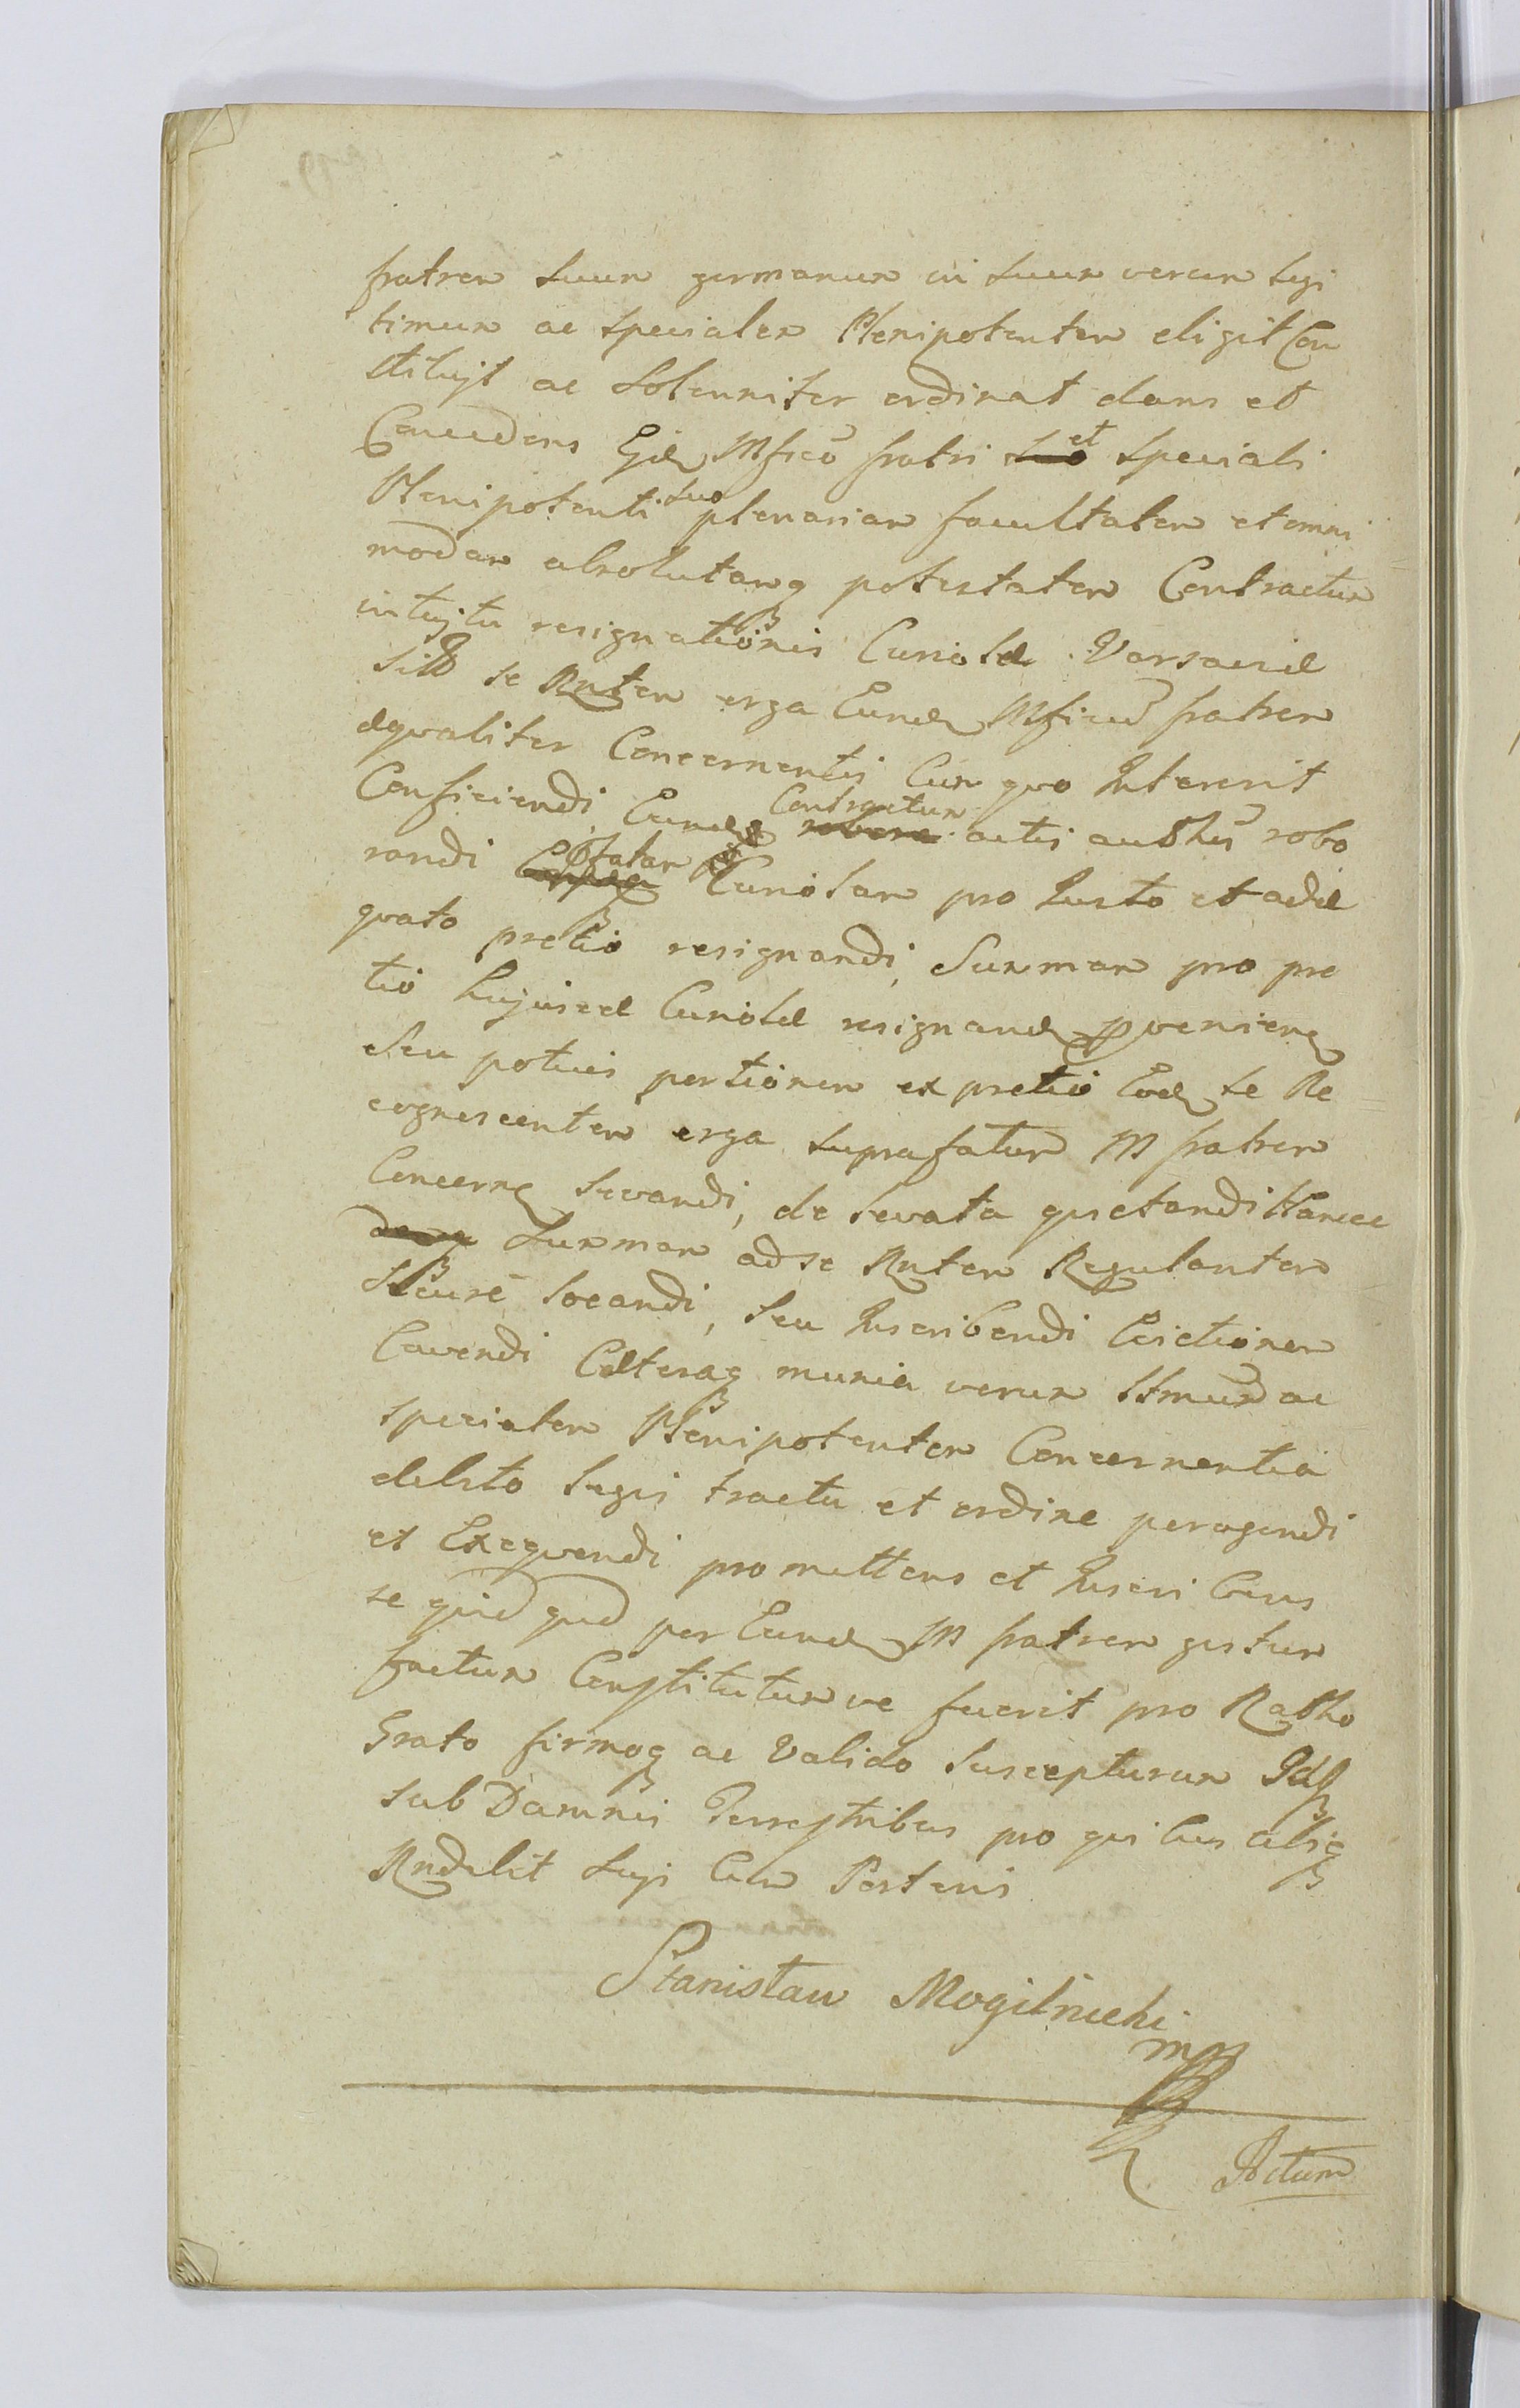 fratrem suum germanum in suum verum legi
timum ac specialem Plenipotentem eligit Con
stituit ac Solenniter ordinat dans et
Concedens Eid Mfico fratri suo et speciali
Plenipotenti suo plenariam facultatem et omni
modam absolutamq potestatem Contractum
intujtu resignationis Curiolæ Varsaviæ
sitæ se Rntem erga Eund Mficum fratrem
æqvaliter Concernentis Cum qvo Intererit
Conficiendi Eundq Contractum actis authis robo
randi Pfatam Curiolam pro Iusto et adæ
qvato pretio resignandi, Summam pro pre
tio hujusce Curiolæ resignand pvenien
seu potius portionem ex pretio Eod se Re
cognoscentem erga suprafatum M fratrem
Concern levandi, de levata qvietandi Hancce
Summam ad se Rntem Regulantem
Secure locandi, seu Inscribendi Evictionem
Cavendi Cæteraq munia verum Ltmum ac
specialem Plenipotentem Concernentia
debito Legis tractu et ordine peragendi
et Exeqvendi promittens et Inscribens
se qvid qvid per Eund M fratrem gestum
factum Constitutumve fuerit pro Ratho
Grato firmoq ac Valido suscepturum Idq
sub Damnis Terrestribus pro qvibus
Rndebit Sui Cum Posteris
Stanisław Mogilnicki
mp
Actum